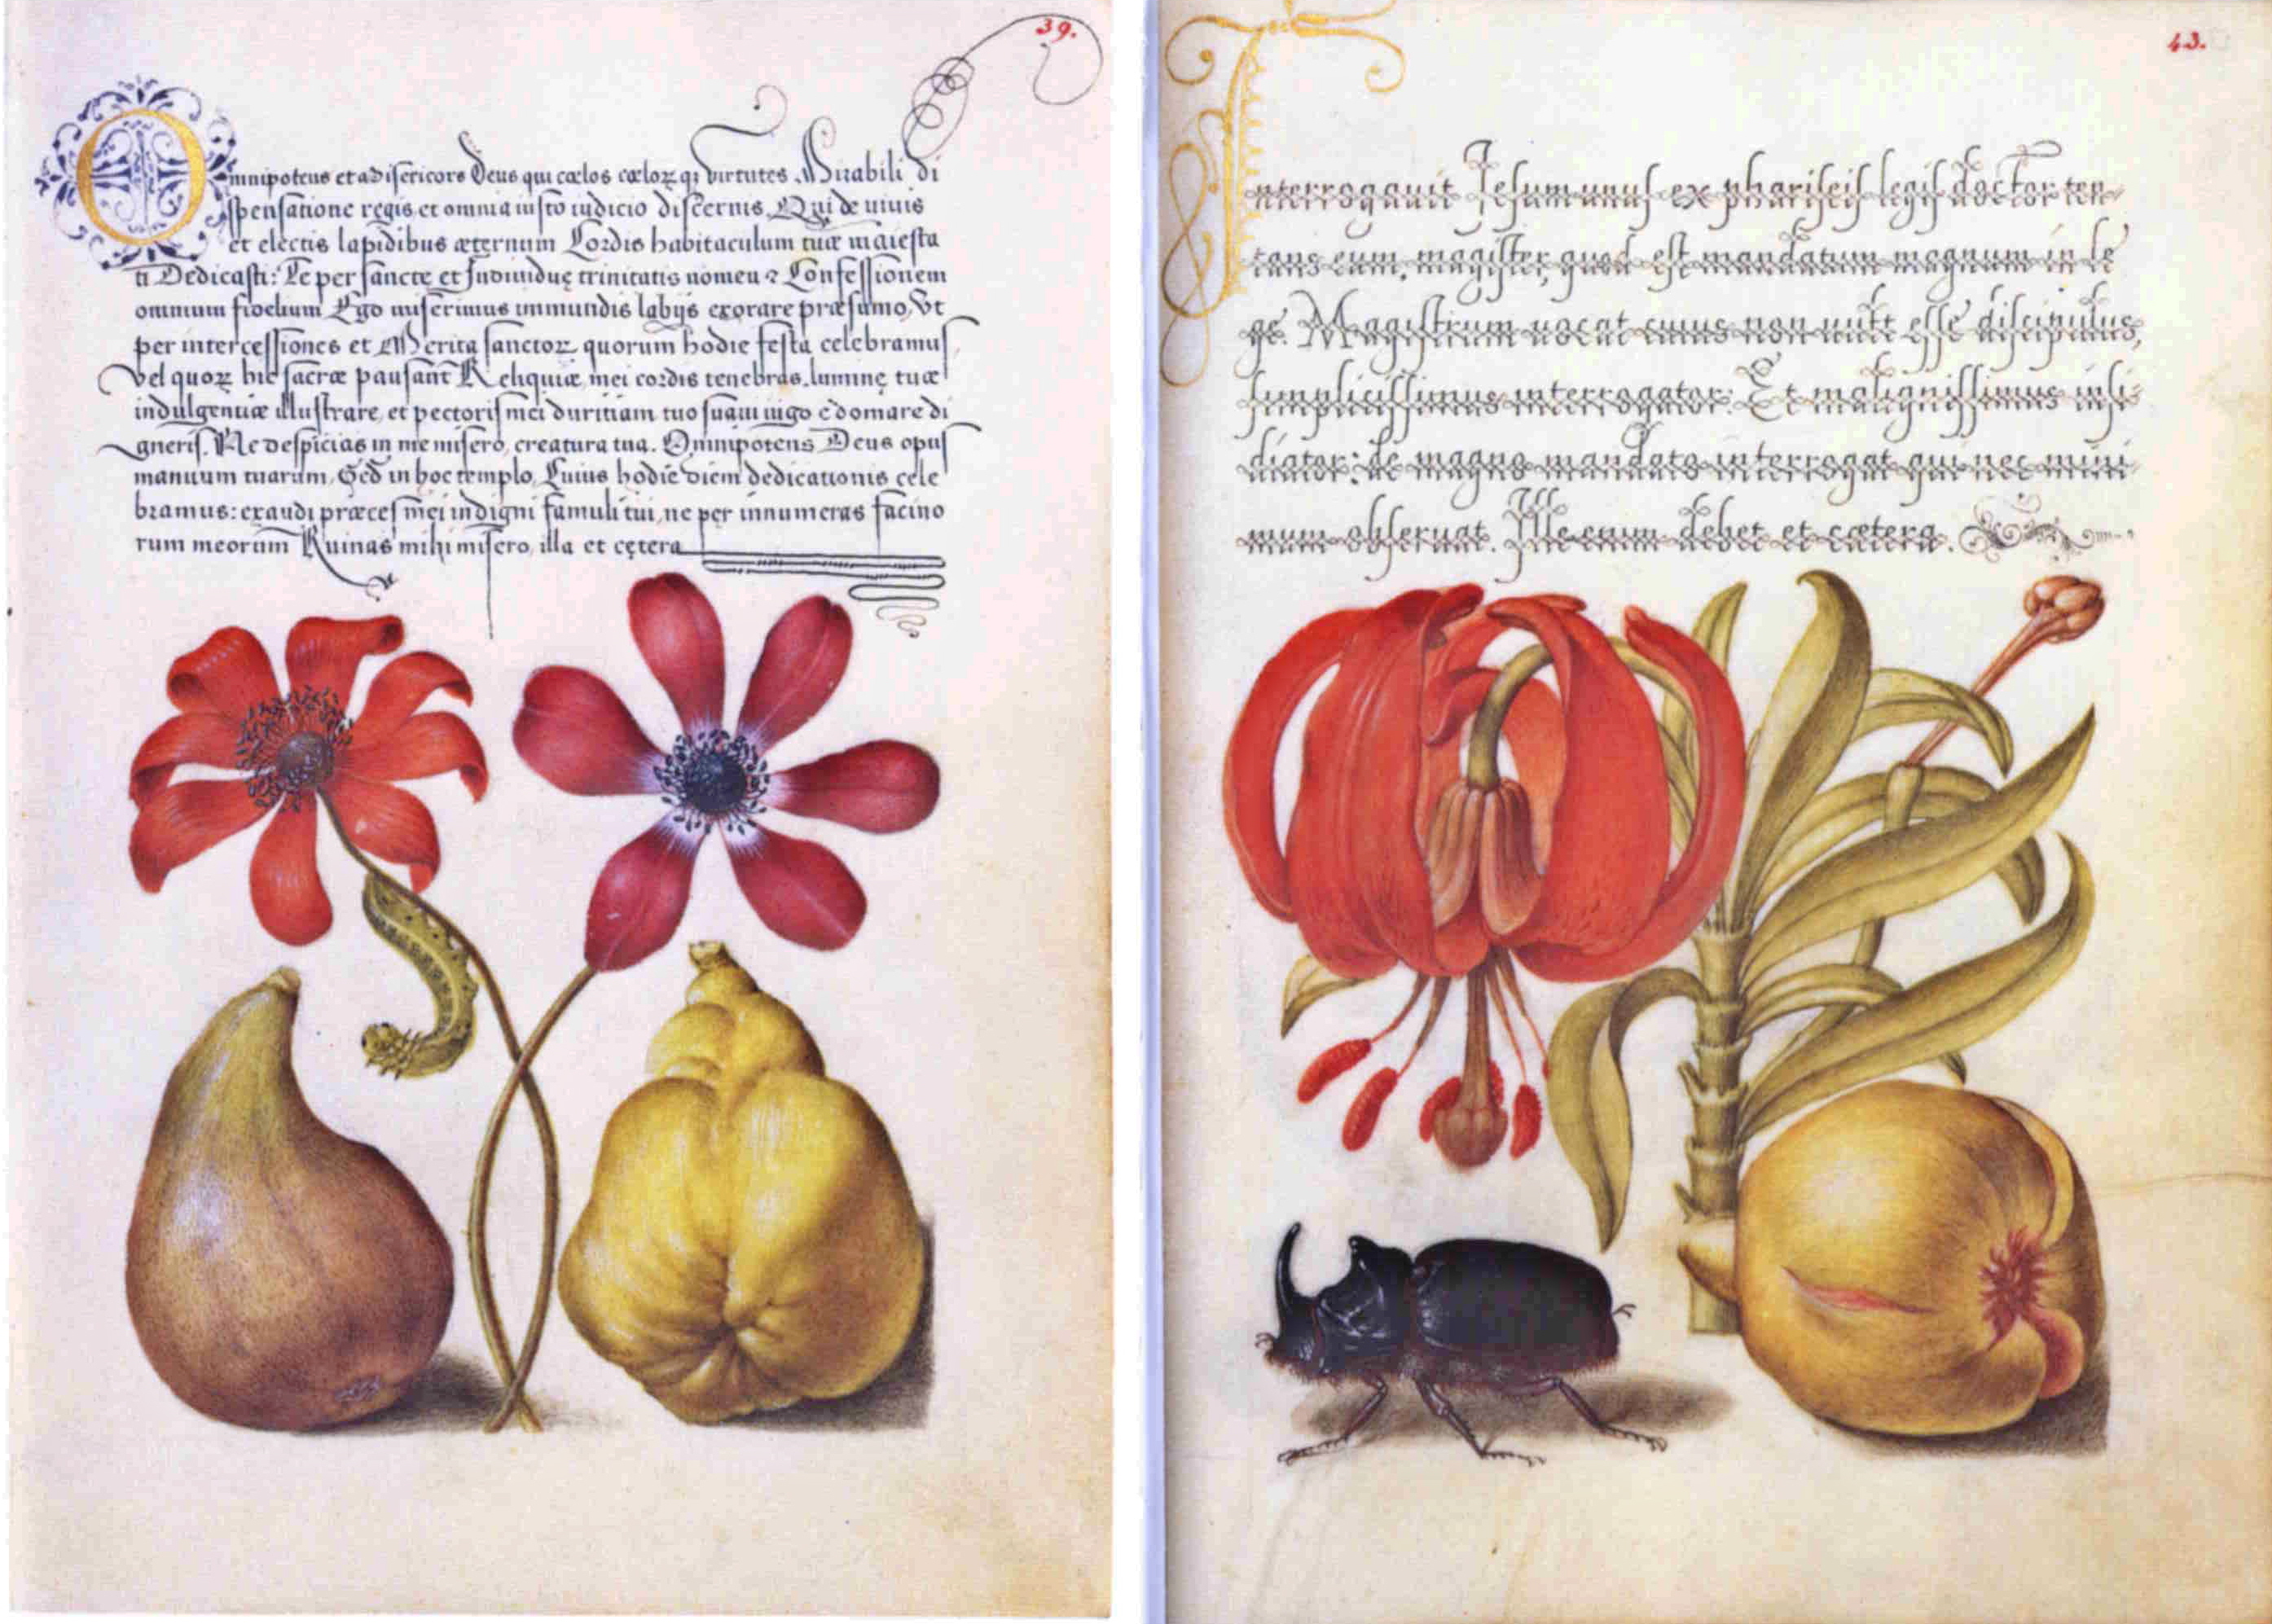 39.
Omnipotens et Misericors Deus qui cœlos cœloꝝ qꝫ virtutes Mirabili di
spensatione regis et omnia iusto iudicio discernis. Qui de uiuis
et electis lapidibus æternum Cordis habitaculum tuæ maiesta
ti Dedicasti: Te per sancte et Indiuiduę trinitatis nomen & Confessionem
omnium fidelium Ego miserimus immundis labijs exorare præsumo, Vt
per intercessiones et Merita sanctoꝝ quorum hodie festa celebramus,
vel quoꝝ hic sacræ pausant Reliquiæ, mei cordis tenebras, luminę tuæ
indulgentiæ illustrare, et pectoris mei duritiam tuo suaui iugo edomare di
gneris. Ne despicias in me misero, creatura tua. Omnipotens Deus opus
manuum tuarum, Sed in hoc templo, Cuius hodie diem dedicationis cele
bramus: exaudi præces mei indigni famuli tui, ne per innumeras facino
rum meorum Ruinas mihi misero, illa et cętera
43.
Interrogauit Jesum unus ex phariseis legis doctor ten-
tans eum, magister, quod est mandatum magnum in le
ge. Magistrum uocat cuius non uult esse discipulus,
simplicissimus interrogator: Et malignissimus insi-
diator: de magno mandato interrogat qui nec mini-
mum obseruat. Ille enim debet et cœtera.